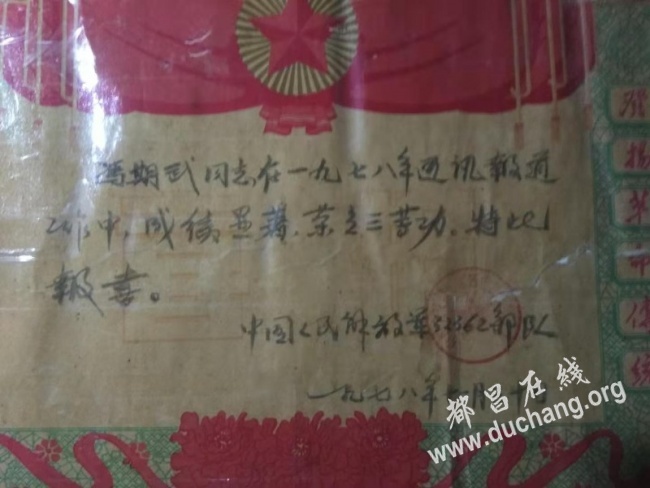 冯期武同志在一九七八年通讯報道
工作中,成绩显著,荣立三等功,特此
報喜。
中国人民解放军部队
一九七八年
發揚革命传统
都昌在线
www.duchang.org